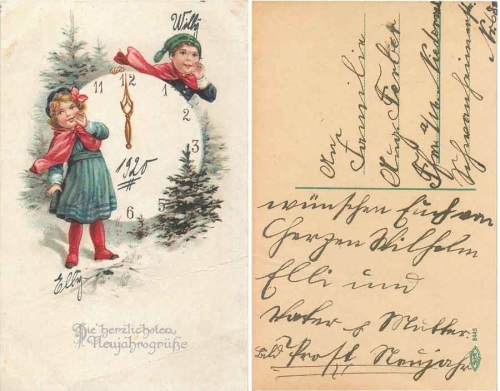 Willy
11
12
1
2
3
6
1920
Elly
Die herzlichsten
Neujahrsgrüße
An
Familie
Aug. Ferber
a/M
wünschen Euch von
Herzen Wilhelm
Elli und
Vater & Mutter
Prost Neujahr